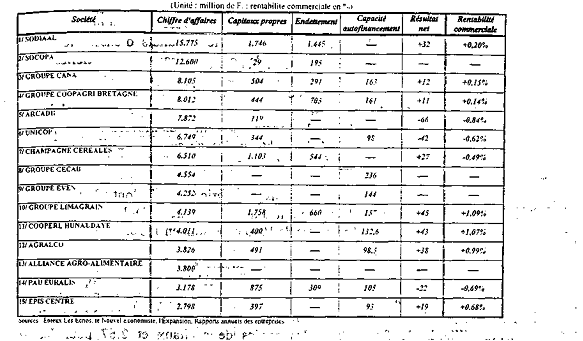 (Unité : million de F. ; rentabilité commerciale en %)
Société Chiffre d'affaires Capitaux propres Endettement Capacité autofinancement Résultat net Rentabilité commerciale
1/ SODIAAL 15.775 1.746 1.445 — +32 +0,20%
2/ SOCOPA 12.600 29 195 — — —
3/ GROUPE CANA 8.105 504 291 163 +12 +0.15%
4/ GROUPE COOPAGRI BRETAGNE 8.012 444 703 161 +11 +0.14%
5/ ARCADIE 7.872 119 — — -66 -0.84%
6/ UNICOPA 6.749 344 — 98 -42 -0.62%
7/ CHAMPAGNE CEREALES 6.510 1.103 544 — +27 -0.49%
8/ GROUPE CECAB 4.554 — — 236 — —
9/ GROUPE EVEN 4.252 — — 144 — —
10/ GROUPE LIMAGRAIN 4.139 1.758 660 157 +45 +1.09%
11/ COOPERL HUNAUDAYE 4.011 400 — 132,6 +43 +1.07%
12/ AGRALCO 3.826 491 — 98.5 +38 +0.99%
13/ ALLIANCE AGRO-ALIMENTAIRE 3.800 — — — — —
14/ PAU EURALIS 3.178 875 309 105 -22 -0.69%
15/ EPIS CENTRE 2.798 397 — 93 +19 +0.68%
Sources : Enjeux Les Echos, le Nouvel Economiste, l'Expansion, Rapports annuels des entreprises